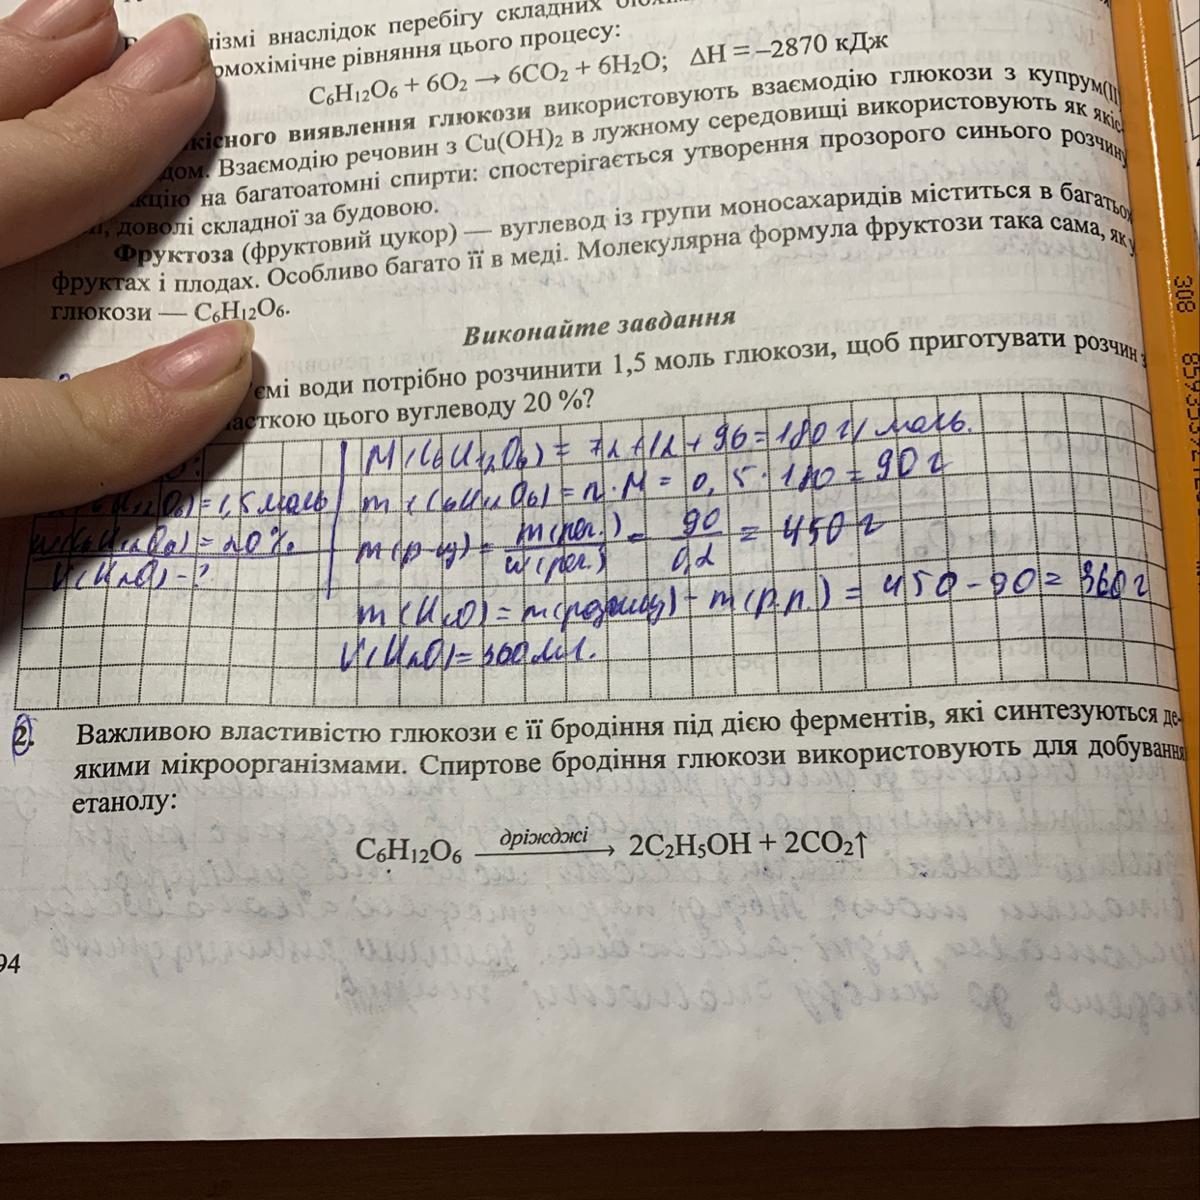 нізмі внаслідок перебігу складних
рмохімічне рівняння цього процесу:
C₆H₁₂O₆ + 6O₂ → 6CO₂ + 6H₂O; ΔH = –2870 кДж
кісного виявлення глюкози використовують взаємодію глюкози з купрум(II)
дом. Взаємодію речовин з Cu(OH)₂ в лужному середовищі використовують як якіс-
кцію на багатоатомні спирти: спостерігається утворення прозорого синього розчину
доволі складної за будовою.
Фруктоза (фруктовий цукор) — вуглевод із групи моносахаридів міститься в багатьох
фруктах і плодах. Особливо багато її в меді. Молекулярна формула фруктози така сама, як у
глюкози — C₆H₁₂O₆.
Виконайте завдання
ємі води потрібно розчинити 1,5 моль глюкози, щоб приготувати розчин з
асткою цього вуглеводу 20 %?
M(C₆H₁₂O₆) = 72+12+96=180 г/моль.
=1,5 моль
m(C₆H₁₂O₆)=n·M=0,5·180=90 г
w(C₆H₁₂O₆)=20%
m(р-ну)= m(реч.)/w(реч.) = 90/0,2 = 450 г
V(H₂O)-?
m(H₂O)=m(розчину)-m(р.р.)=450-90=360 г
V(H₂O)=360 мл.
2. Важливою властивістю глюкози є її бродіння під дією ферментів, які синтезуються де-
якими мікроорганізмами. Спиртове бродіння глюкози використовують для добування
етанолу:
C₆H₁₂O₆ дріжджі → 2C₂H₅OH + 2CO₂↑
94
308